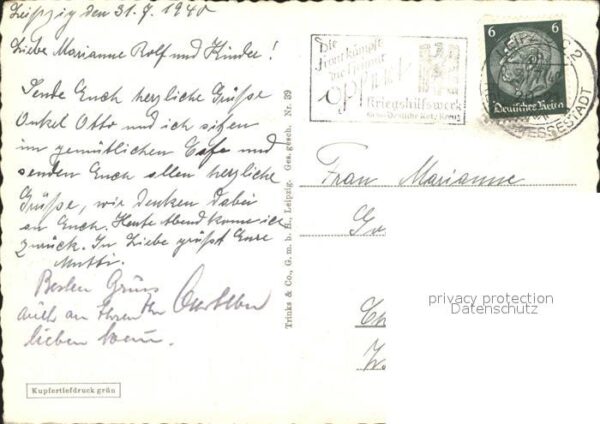 Leipzig den 31.7.1940
Liebe Marianne Rolf und Kinder!
Sende Euch herzliche Grüße
Onkel Otto und ich sitzen
im gemütlichen Cafe und
senden Euch allen herzliche
Grüße, wir denken dabei
an Euch. Heute Abend komme ich
zurück. In Liebe grüßt Eure
Mutti.
Besten Gruss
auch an Ihren
lieben
Kupfertiefdruck grün
Trinks & Co., G. m. b. H., Leipzig. Ges. gesch. Nr. 39
Die
Front kämpft
die Heimat
opfert
Kriegshilfswerk
für das Deutsche Rote Kreuz
6 6
Deutsches Reich
LEIPZIG C2
MESSESTADT
Frau Marianne
G
privacy protection
Datenschutz
Ch